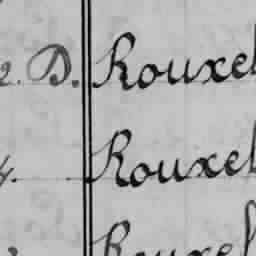 2. D. Rouxel
4. Rouxel
Rouxel